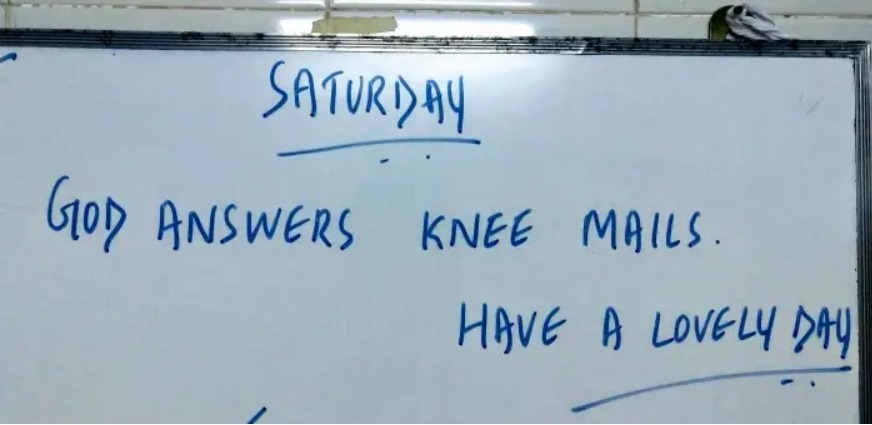 SATURDAY
GOD ANSWERS KNEE MAILS.
HAVE A LOVELY DAY